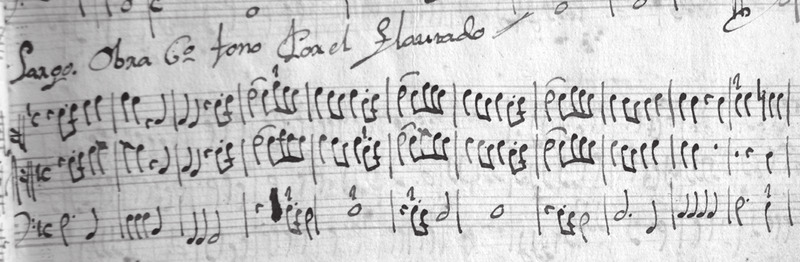 Largo. Obra 6º tono Por el flautado